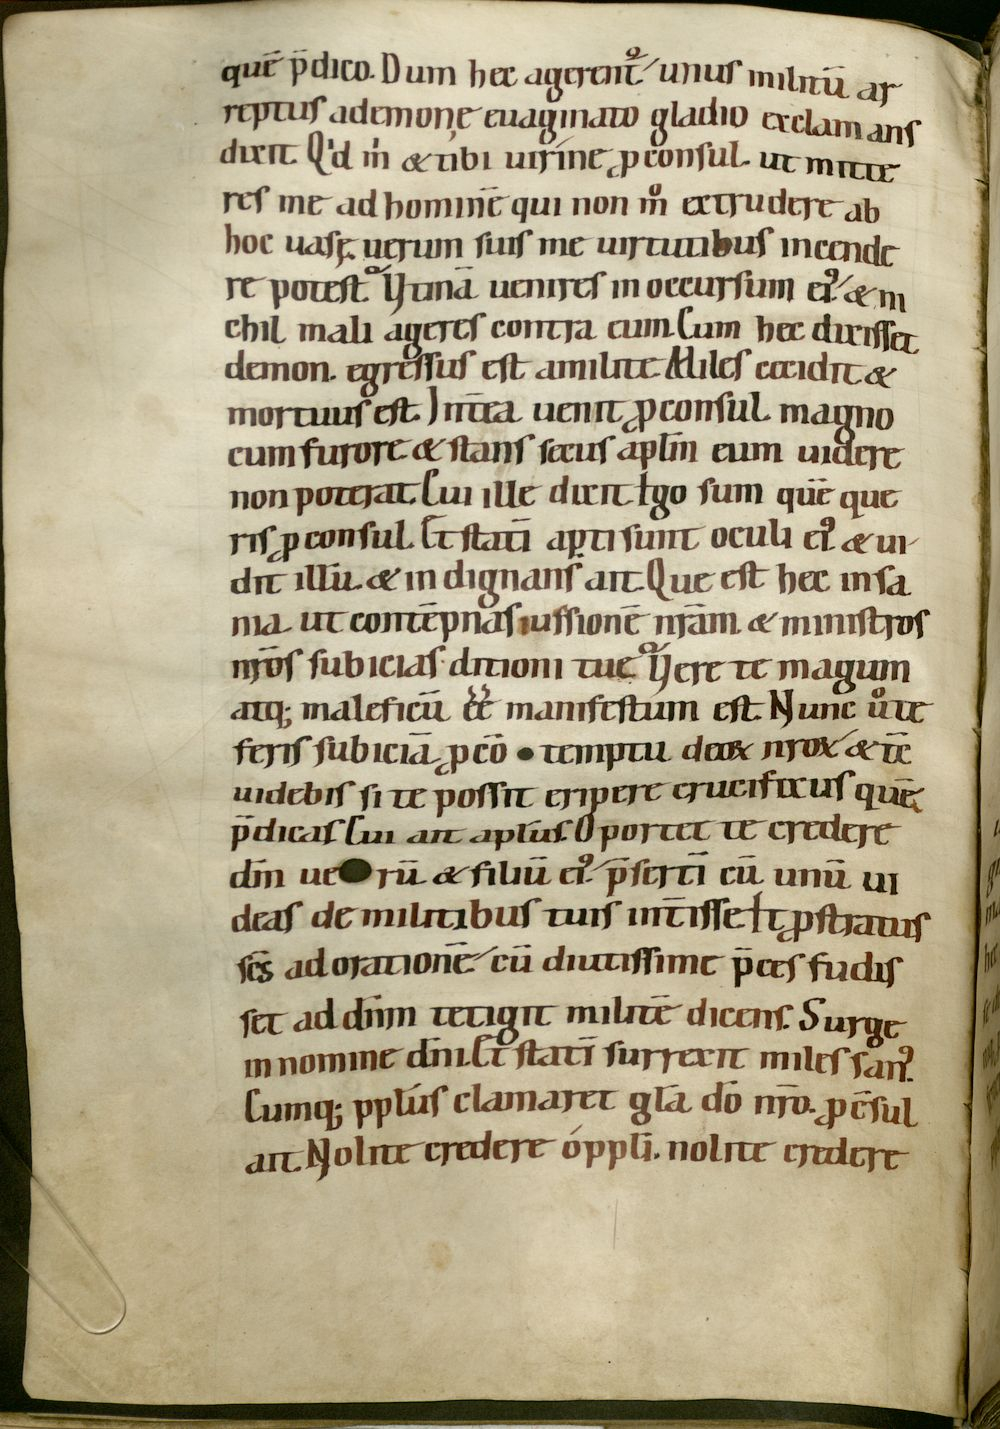 quē p̄dico. Dum hec agerent᷑ unus militū ar
reptus a demone euaginato gladio exclamans
dixit. Qͥd m̍ & tibi uirine ꝓconsul. ut mitte
res me ad hominē qui non m̊ extrudere ab
hoc uase. uerum suis me uirtutibus incende
re potest. Vtinā uenires in occursum ei᾽ & ni
chil mali ageres contra eum. Cum hec dixisset
demon. egressus est a milite. Miles cecidit &
mortuus est. Int̄ea uenit ꝓconsul magno
cum furore & stans secus apl̄m eum uidere
non poterat. Cui ille dixit. Ego sum quē que
ris ꝓconsul. Et statī ap̱ti sunt oculi ei᾽ & ui
dit illū. & indignans ait. Que est hec insa
nia. ut contēpnas iussionē nr̄am. & ministros
nr̄os subicias ditioni tuę. Vere te magum
atq; maleficū ēē manifestum est. Nunc ů te
feris subiciā ꝓ cō temptu deoꝝ nroꝝ & tc̄
uidebis si te possit eripere crucifixus quē
p̄dicas. Cui ait apl̄us. Oportet te credere
dm̄ uerū & filiū ei᾽ p̄sertī cū unū ui
deas de militibus tuis int̄isse. Et ꝓstratus
sc̄s ad orationē cū diutissime p̄ces fudis
set ad dn̄m tetigit militē dicens. Surge
in nomine dn̄i. Et statī surrexit miles san᾽.
Cumq; ppl̄us clamaret gl̄a dō nr̄o. ꝓc̄sul
ait. Nolite credere ó ppl̄i. nolite credere